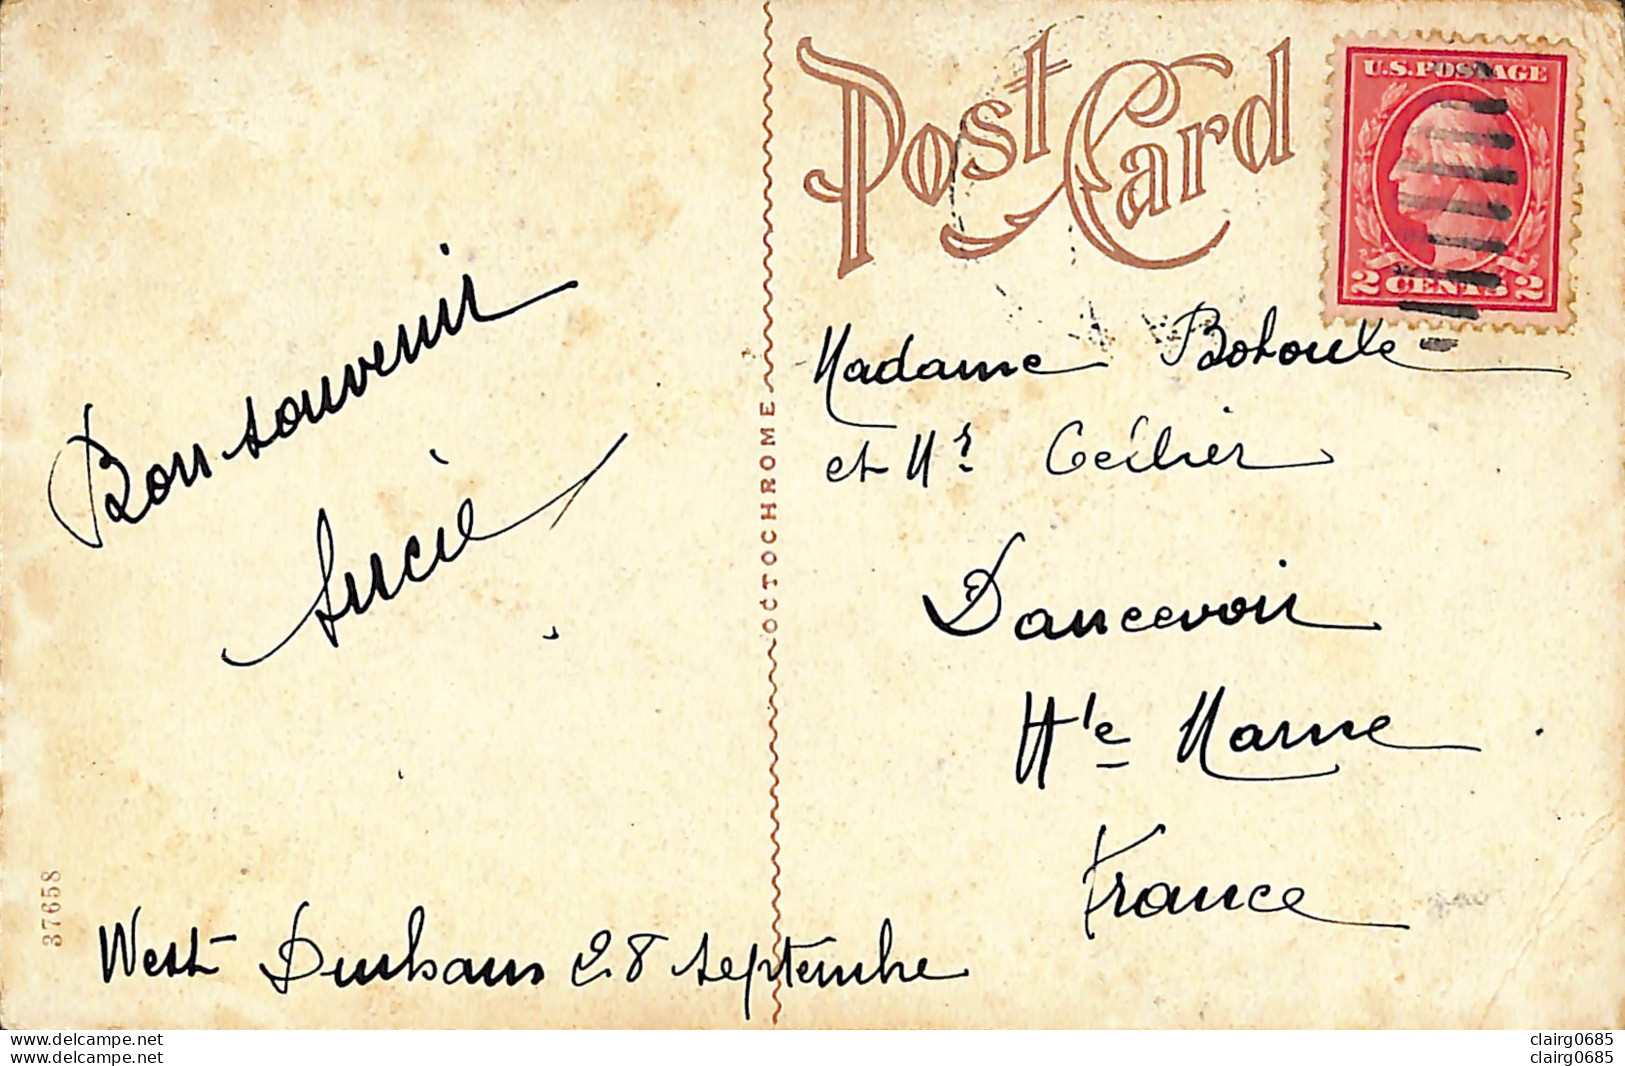 Post Card
U.S. POSTAGE
2 CENTS 2
Bon souvenir
Lucie
Madame
et Mr. Cécilier
Dancevoir
Hte Marne
France
West Durham 28 septembre
OCTOCHROME
37658
www.delcampe.net
www.delcampe.net
clairg0685
clairg0685